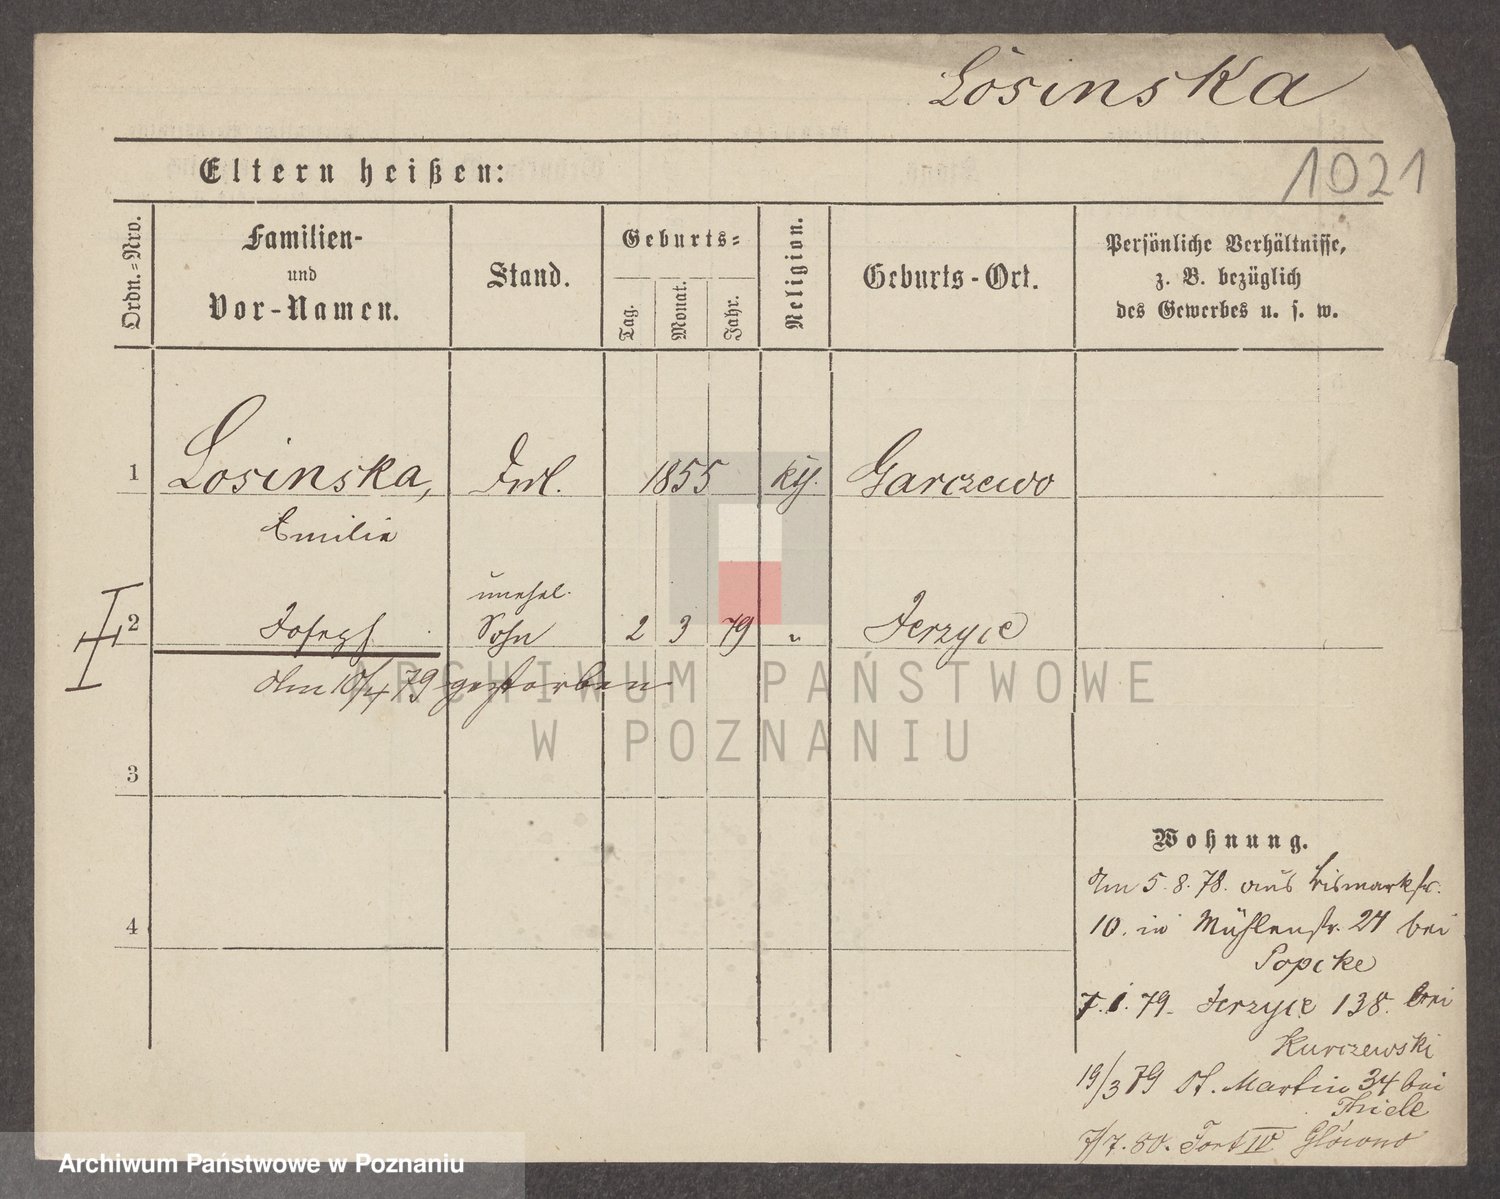 Losinska
1021
Eltern heißen:
Ordn.-Nro.
Familien-
und
Vor-Namen.
Stand.
Geburts-
Tag.
Monat.
Jahr.
Religion.
Geburts-Ort.
Persönliche Verhältnisse,
z. B. bezüglich
des Gewerbes u. s. w.
1 Losinska, Frl. 1855 kth. Garczewo
Emilie
unehel.
2 Joseph Sohn 2 3 79 " Jerzyce
Am 10/4 79 gestorben
3
4
Wohnung.
Am 5.8.78. aus Bismarkstr.
10. in Mühlenstr. 24 bei
Popcke
7.1.79. Jerzyce 138. bei
Kurczewski
19/3 79 St. Martin 34 bei
Thiele
7/7.80. Fort IV Główno
ARCHIWUM PAŃSTWOWE
W POZNANIU
Archiwum Państwowe w Poznaniu